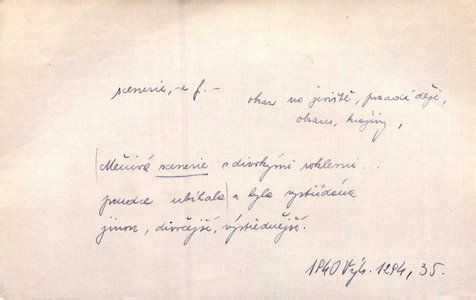 scenerie, -e f. -
obraz na jevišti, pozadí děje,
obrazu, krajiny,
Měnivá scenerie s divokými roklemi...
prudce ubíhala a byla vystřídána
jinou, divočejší, výstřednější.
1840 Výb. 1294, 35.